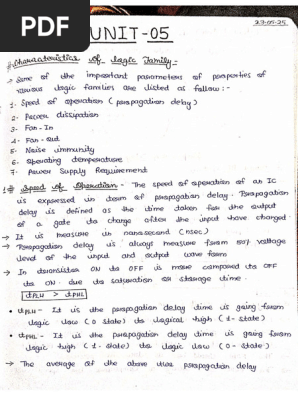 PDF
UNIT-05
27-05-25
# Characteristics of Logic Family -
→ Some of the important parameters of properties of
various logic families are listed as follow :-
1. Speed of operation (propagation delay)
2. Power dissipation
3. Fan-In
4. Fan-out
5. Noise immunity
6. Operating temperature
7. Power Supply Requirement
1# Speed of Operation - The speed of operation of an IC
is expressed in term of propagation delay. Propagation
delay is defined as the time taken for the output
of a gate to change after the input have changed.
→ It is measure in nanosecond (nsec)
→ Propagation delay is always measure from 50% voltage
level of the input and output wave form
→ In transistor ON to OFF is more compared to OFF
to ON due to saturation or storage time.
tPLH > tPHL
• tPLH - It is the propagation delay time is going from
logic low (0 state) to logical high (1-state)
• tPHL - It is the propagation delay time is going from
logic high (1-state) to logic low (0-state)
→ The average of the above two propagation delay